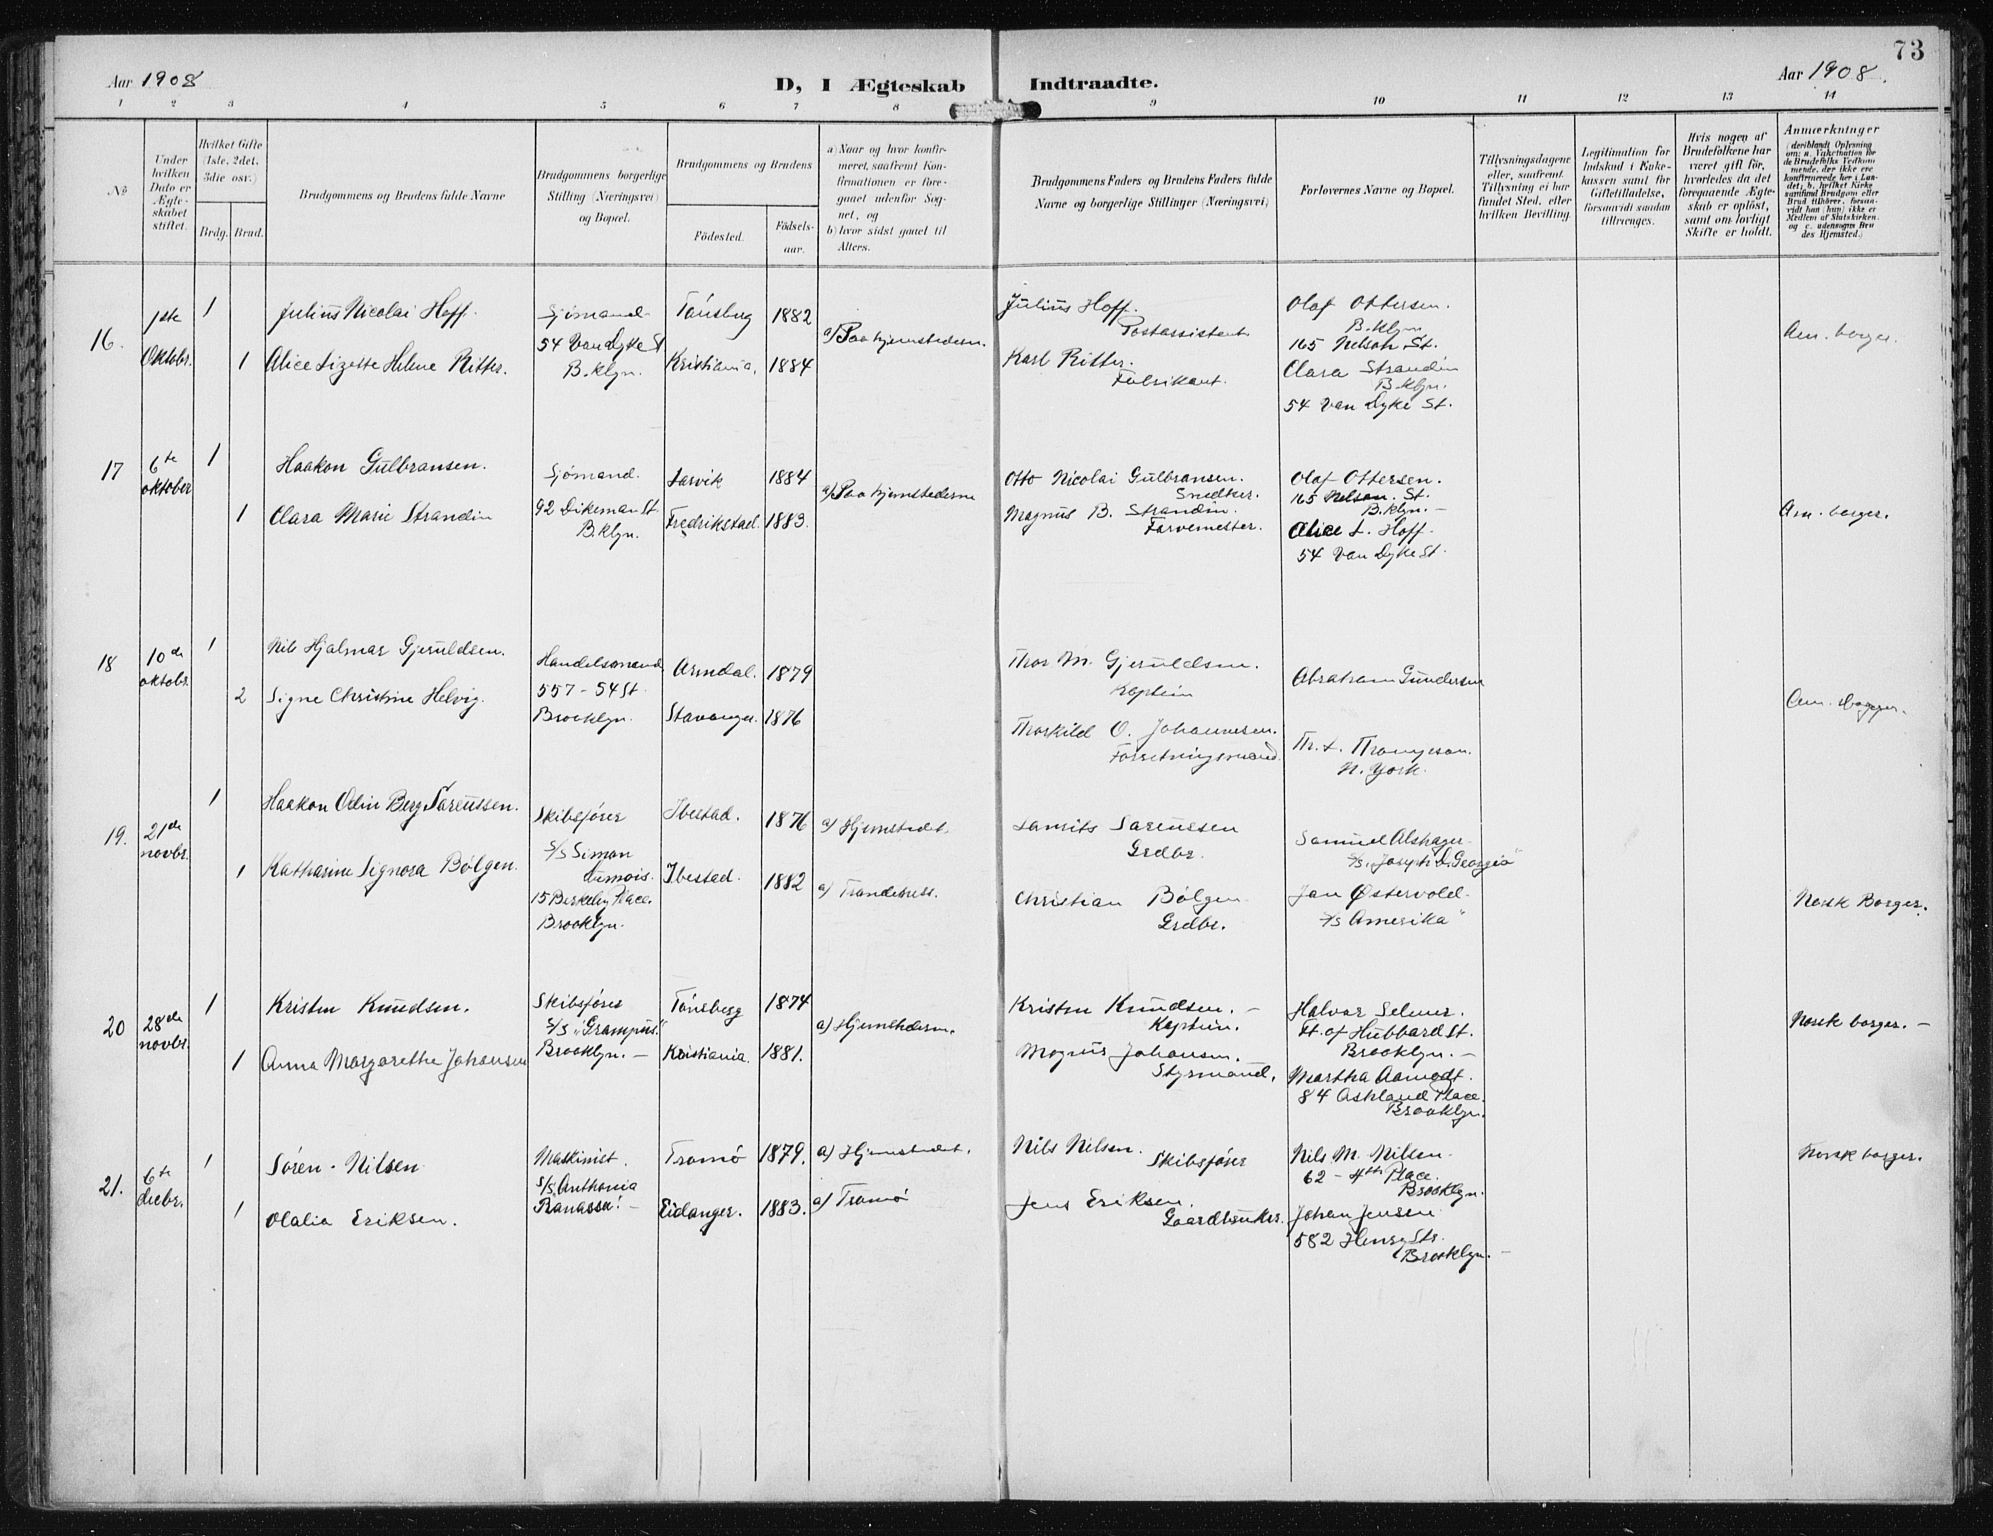 73
Aar 1908
D, I Ægteskab Indtraadte.
Aar 1908.
1 2 3 4 5 6 7 8 9 10 11 12 13 14
No
Under hvilken Dato er Ægte-skabet stiftet.
Hvilket Gifte (1ste, 2det, 3die osv.)
Brdg. Brud.
Brudgommens og Brudens fulde Navne
Brudgommens borgerlige Stilling (Næringsvei) og Bopæl.
Brudgommens og Brudens
Fødested.
Fødsels-aar.
a) Naar og hvor konfir-
meret, saafremt Kon-
firmationen er fore-
gaaet udenfor Sog-
net, og
b) hvor sidst gaaet til
Alters.
Brudgommens Faders og Brudens Faders fulde
Navne og borgerlige Stillinger (Næringsvei)
Forlovernes Navne og Bopæl.
Tillysningsdagene
eller, saafremt
Tillysning ei har
fundet Sted, efter
hvilken Bevilling.
Legitimation for
Indskud i Enke-
kassen samt for
Giftetilladelse,
forsaavidt saadan
tiltrænges.
Hvis nogen af
Brudefolkene har
været gift før,
hvorledes da det
foregaaende Ægte-
skab er opløst,
samt om lovligt
Skifte er holdt.
Anmærkninger
(deriblandt Oplysning
om: a. Vakcination for
de Brudefolks Vedkom
mende, der ikke ere
konfirmerede her i Lan-
det; b. hvilket Kirke
samfund Brudgom eller
Brud tilhører, forsaa-
vidt han (hun) ikke er
Medlem af Statskirken.
og c. udensogns Bru
des Hjemsted.)
16.
1ste
Oktobr.
1
Julius Nicolai Hoff.
1 Alice Lizette Helene Ritter.
Sjømand.
54 Van Dyke St
B.klyn.
Tønsberg 1882
Kristiania, 1884
a) Paa hjemstederne.
Julius Hoff.
Postassistent
Karl Ritter.
Fabrikant.
Olaf Ottersen.
B.klyn
165 Nelson St.
Clara Strandin
B.klyn.
54 Van Dyke St.
Am. borger.
17
6te
oktober
1
Haakon Gulbransen.
1 Clara Marie Strandin
Sjømand.
92 Dikeman St.
B.klyn.
Larvik 1884
Fredrikstad. 1883.
a) Paa hjemstederne
Otto Nicolai Gulbransen.
Snedker.
Magnus B. Strandin.
Farvemester.
Olaf Ottersen.
165 Nelson. St.
B.klyn. –
Alice L. Hoff.
54 Van Dyke St.
Am. borger.
18
10de
oktobr.
1
Nils Hjalmar Gjeruldsen.
2 Signe Christine Helvig.
Handelsmand
557 – 54 St.
Brooklyn.
Arendal. 1879
Stavanger. 1876
Thor M. Gjeruldsen.
Kaptein
Thorkild O. Johannesen.
Forretningsmand.
Abraham Gundersen
Th. L. Thompson.
N. York.
Am. borger.
19.
21de
novbr.
1
Haakon Odin Berg Sørenssen.
1 Katharine Signora Bølgen.
Skibsfører
S/S Simon
Dumois.
15 Berkeley Place.
Brooklyn.
Ibestad. 1876
Ibestad. 1882
a) Hjemstedet.
a)
Laurits Sørenssen
Grdbr.
Christian Bølgen
Grdbr.
Samuel Alshager.
S/S. "Joseph D. Georgia"
Jan Østervold
S/S Amerika"
Norsk Borger.
20
28de
novbr.
1
Kristen Knudsen.
1 Anna Margarethe Johansen
Skibsfører
S/S "Grampus."
Brooklyn. –
Tønsberg 1874
Kristiania. 1881.
a) Hjemstederne.
Kristen Knudsen. –
Kaptein.
Magnus Johansen.
Styrmand.
Halvar Selmer.
Ft. of Hubbard St.
Brooklyn. –
Martha Aamodt.
84 Ashland Place.
Brooklyn.
Norsk borger. –
21.
6te
decbr.
1
Søren Nilsen
1 Olalia Eriksen.
Maskinist.
S/S Anthonia
Tromø 1879.
Eidanger. 1883.
a) Hjemstedet.
a) Tromø
Nils Nilsen.
Skibsfører
Jens Eriksen.
Gaardbruker.
Nils M. Nilsen
62 – 4th Place.
Brooklyn.
Johan Jensen
582 Henry Str.
Brooklyn. –
Norsk borger.